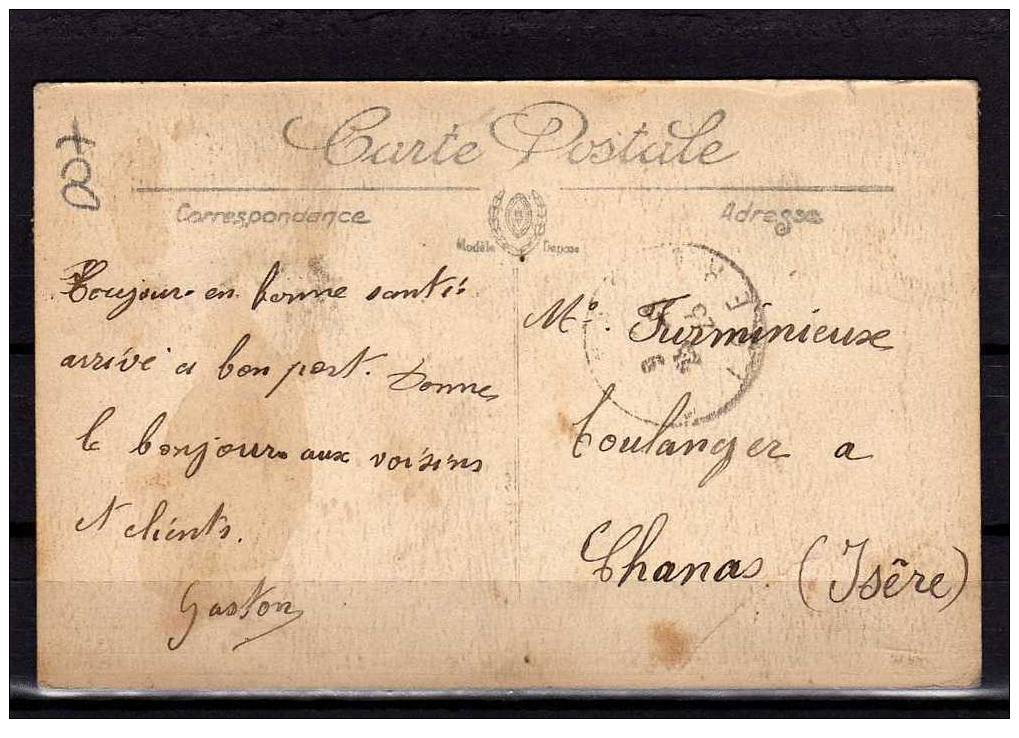 Carte Postale
Correspondance
Adresse
Modèle Déposé
Toujours en bonne santé
arrivé a bon port. Donne
le bonjour aux voisins
et clients.
Gaston
Mr. Furminieux
boulanger a
Chanas (Isère)